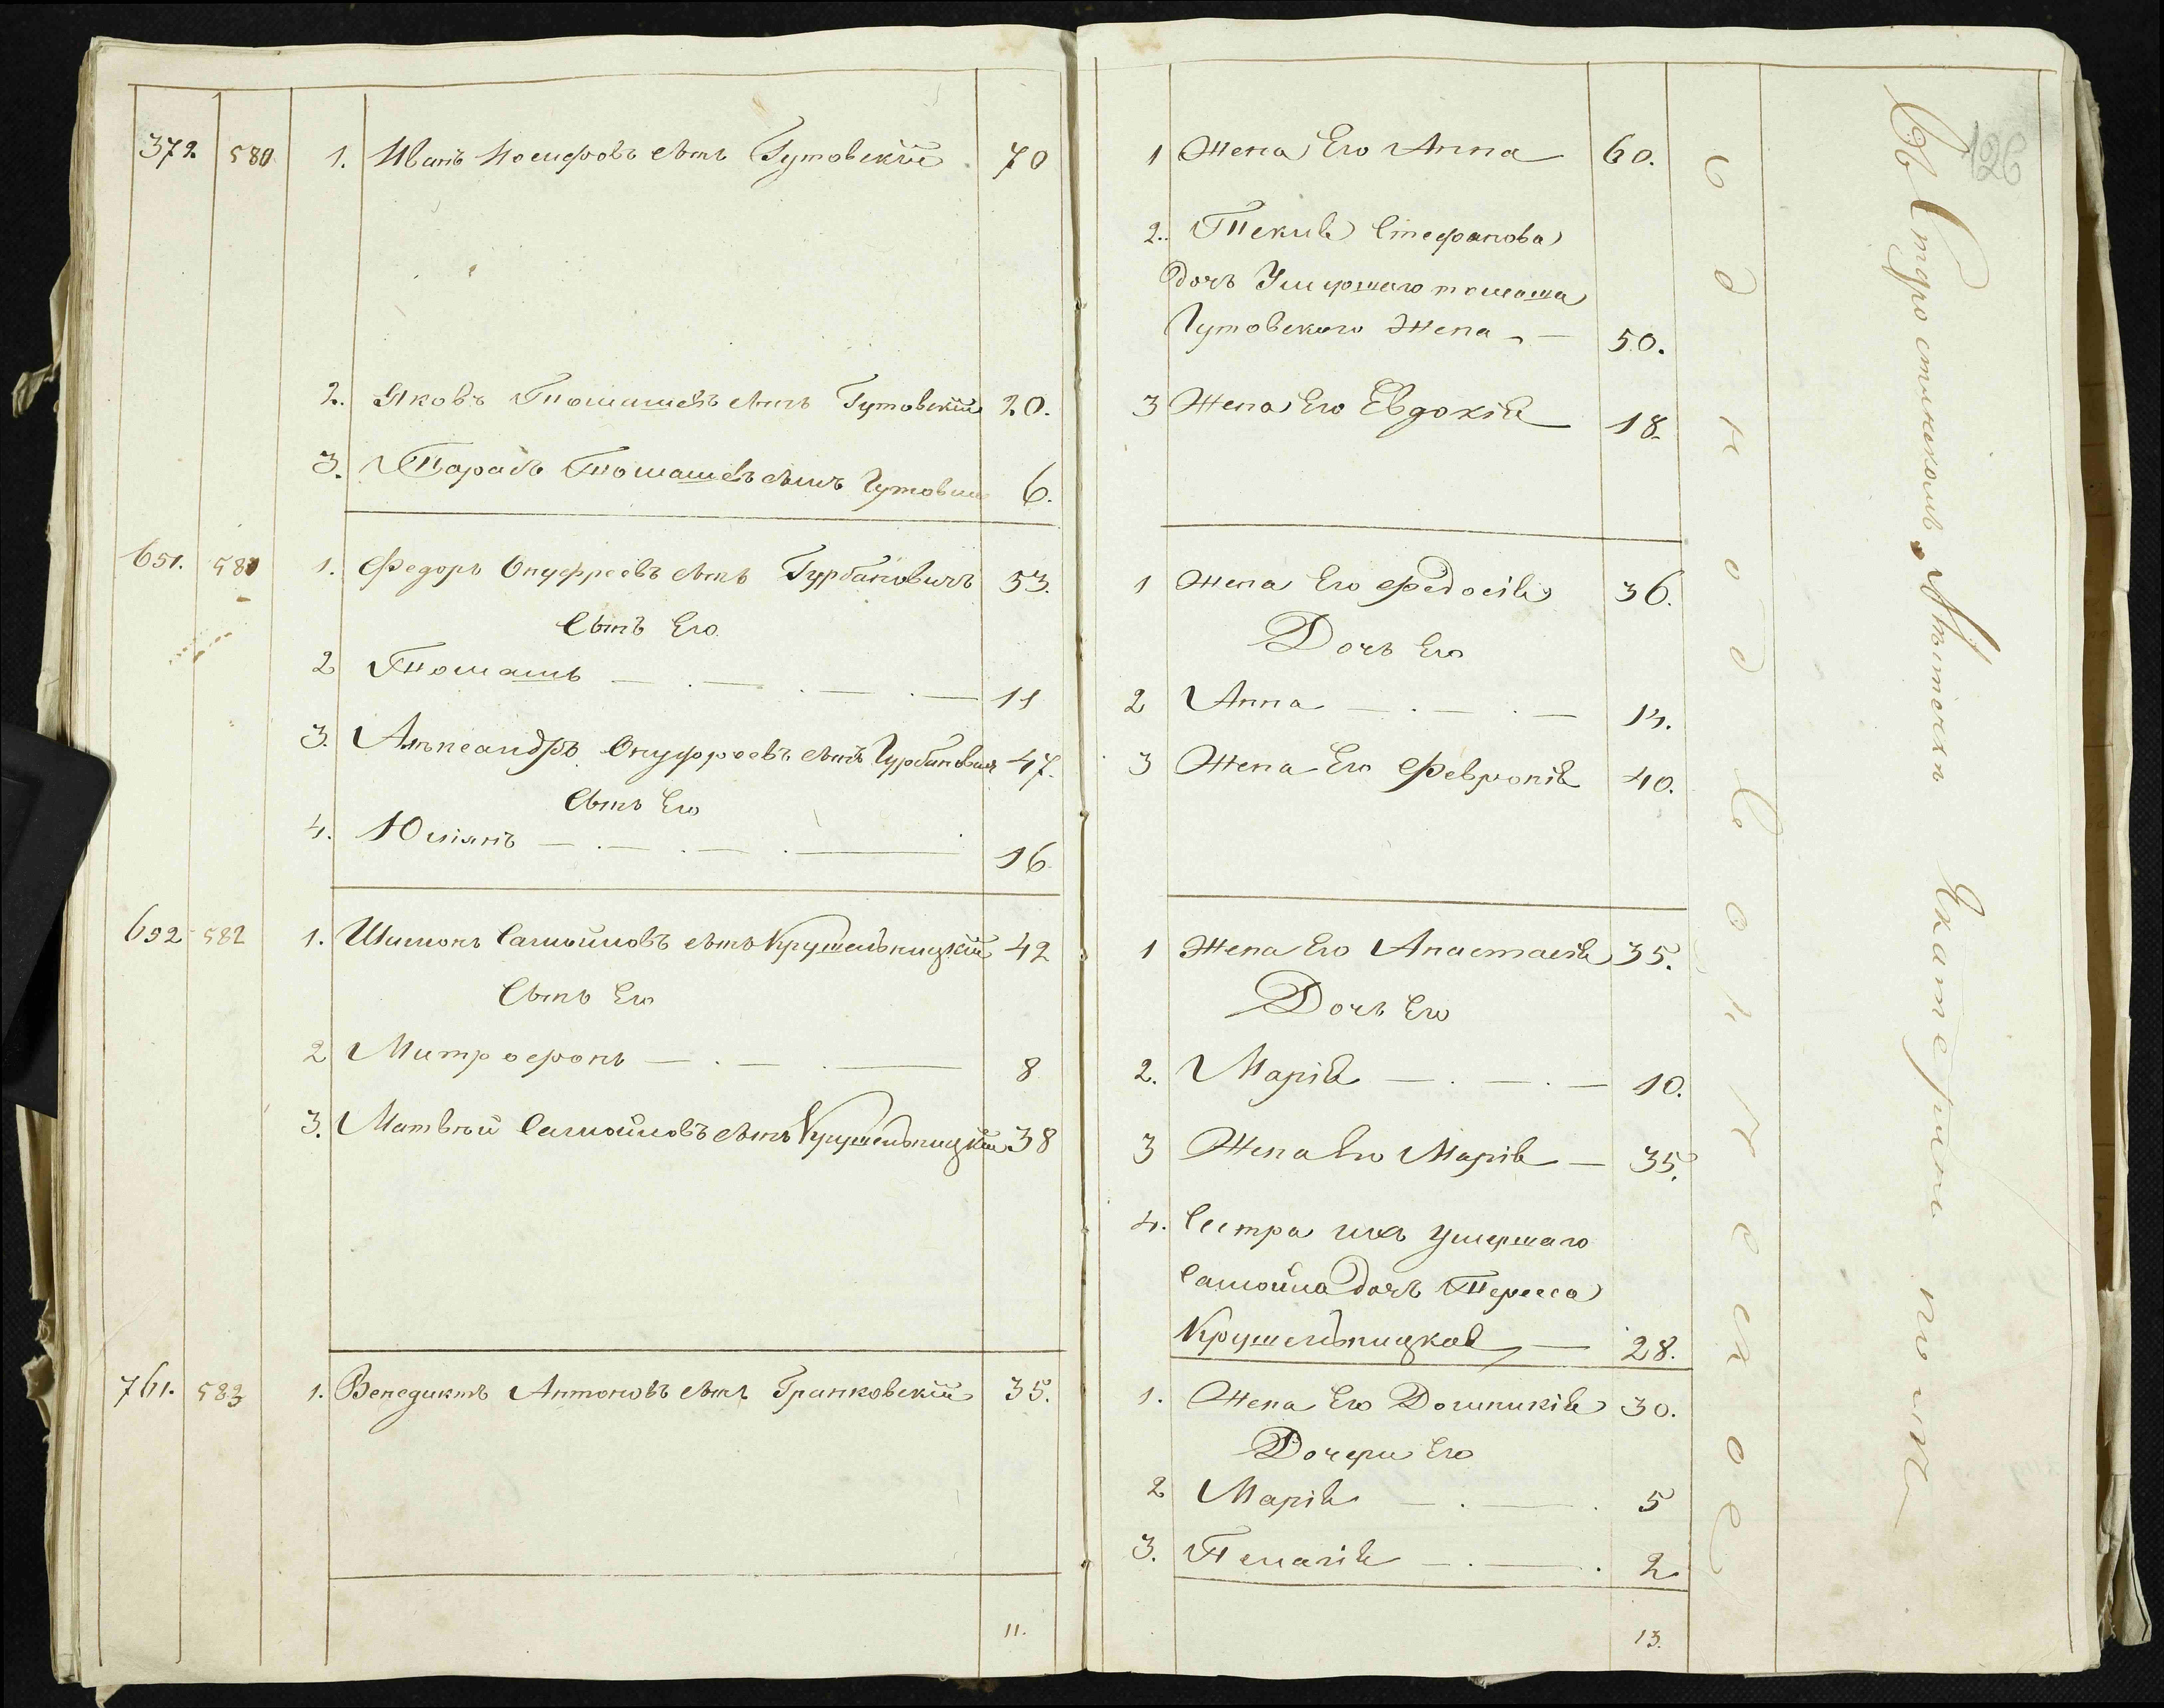 372. 580 1. Иванъ Иосифовъ сынъ Гутовскій 70
2. Яковъ Томашевъ сынъ Гутовскій 20.
3. Тарасъ Томашевъ сынъ Гутовскій 6.
651. 581 1. Федоръ Онуфреевъ сынъ Гурбановичъ 53.
Сынъ Его
2 Томашъ 11
3. Александръ Онуфреевъ сынъ Гурбановичъ 47.
Сынъ Его
4. Юліянъ 16
652 582 1. Шимонъ Самойловъ сынъ Крушельницкій 42
Сынъ Его
2 Митрофонъ 8
3. Матвѣй Самойловъ сынъ Крушельницкій 38
761. 583 1. Венедиктъ Антоновъ сынъ Гранковскій 35.
11.
126
1 Жена Его Анна 60.
2. Текля Стефанова
дочъ Умершаго томаша
Гутовскаго Жена 50.
3 Жена Его Евдокія 18.
1 Жена Его Федосія 36.
Дочъ Его
2 Анна 14.
3 Жена Его Февронія 40.
1 Жена Его Анастасія 35.
Дочъ Его
2. Марія 10.
3 Жена Его Марія 35.
4. Сестра ихъ умершаго
Самойла дочъ Тересса
Крушельницкая 28.
1. Жена Его Доминикія 30.
Дочери Его
2 Марія 5
3. Пелагія 2
13.
Однодворческое
Въ Старостинскомъ Мѣстечкѣ Екатеринополѣ